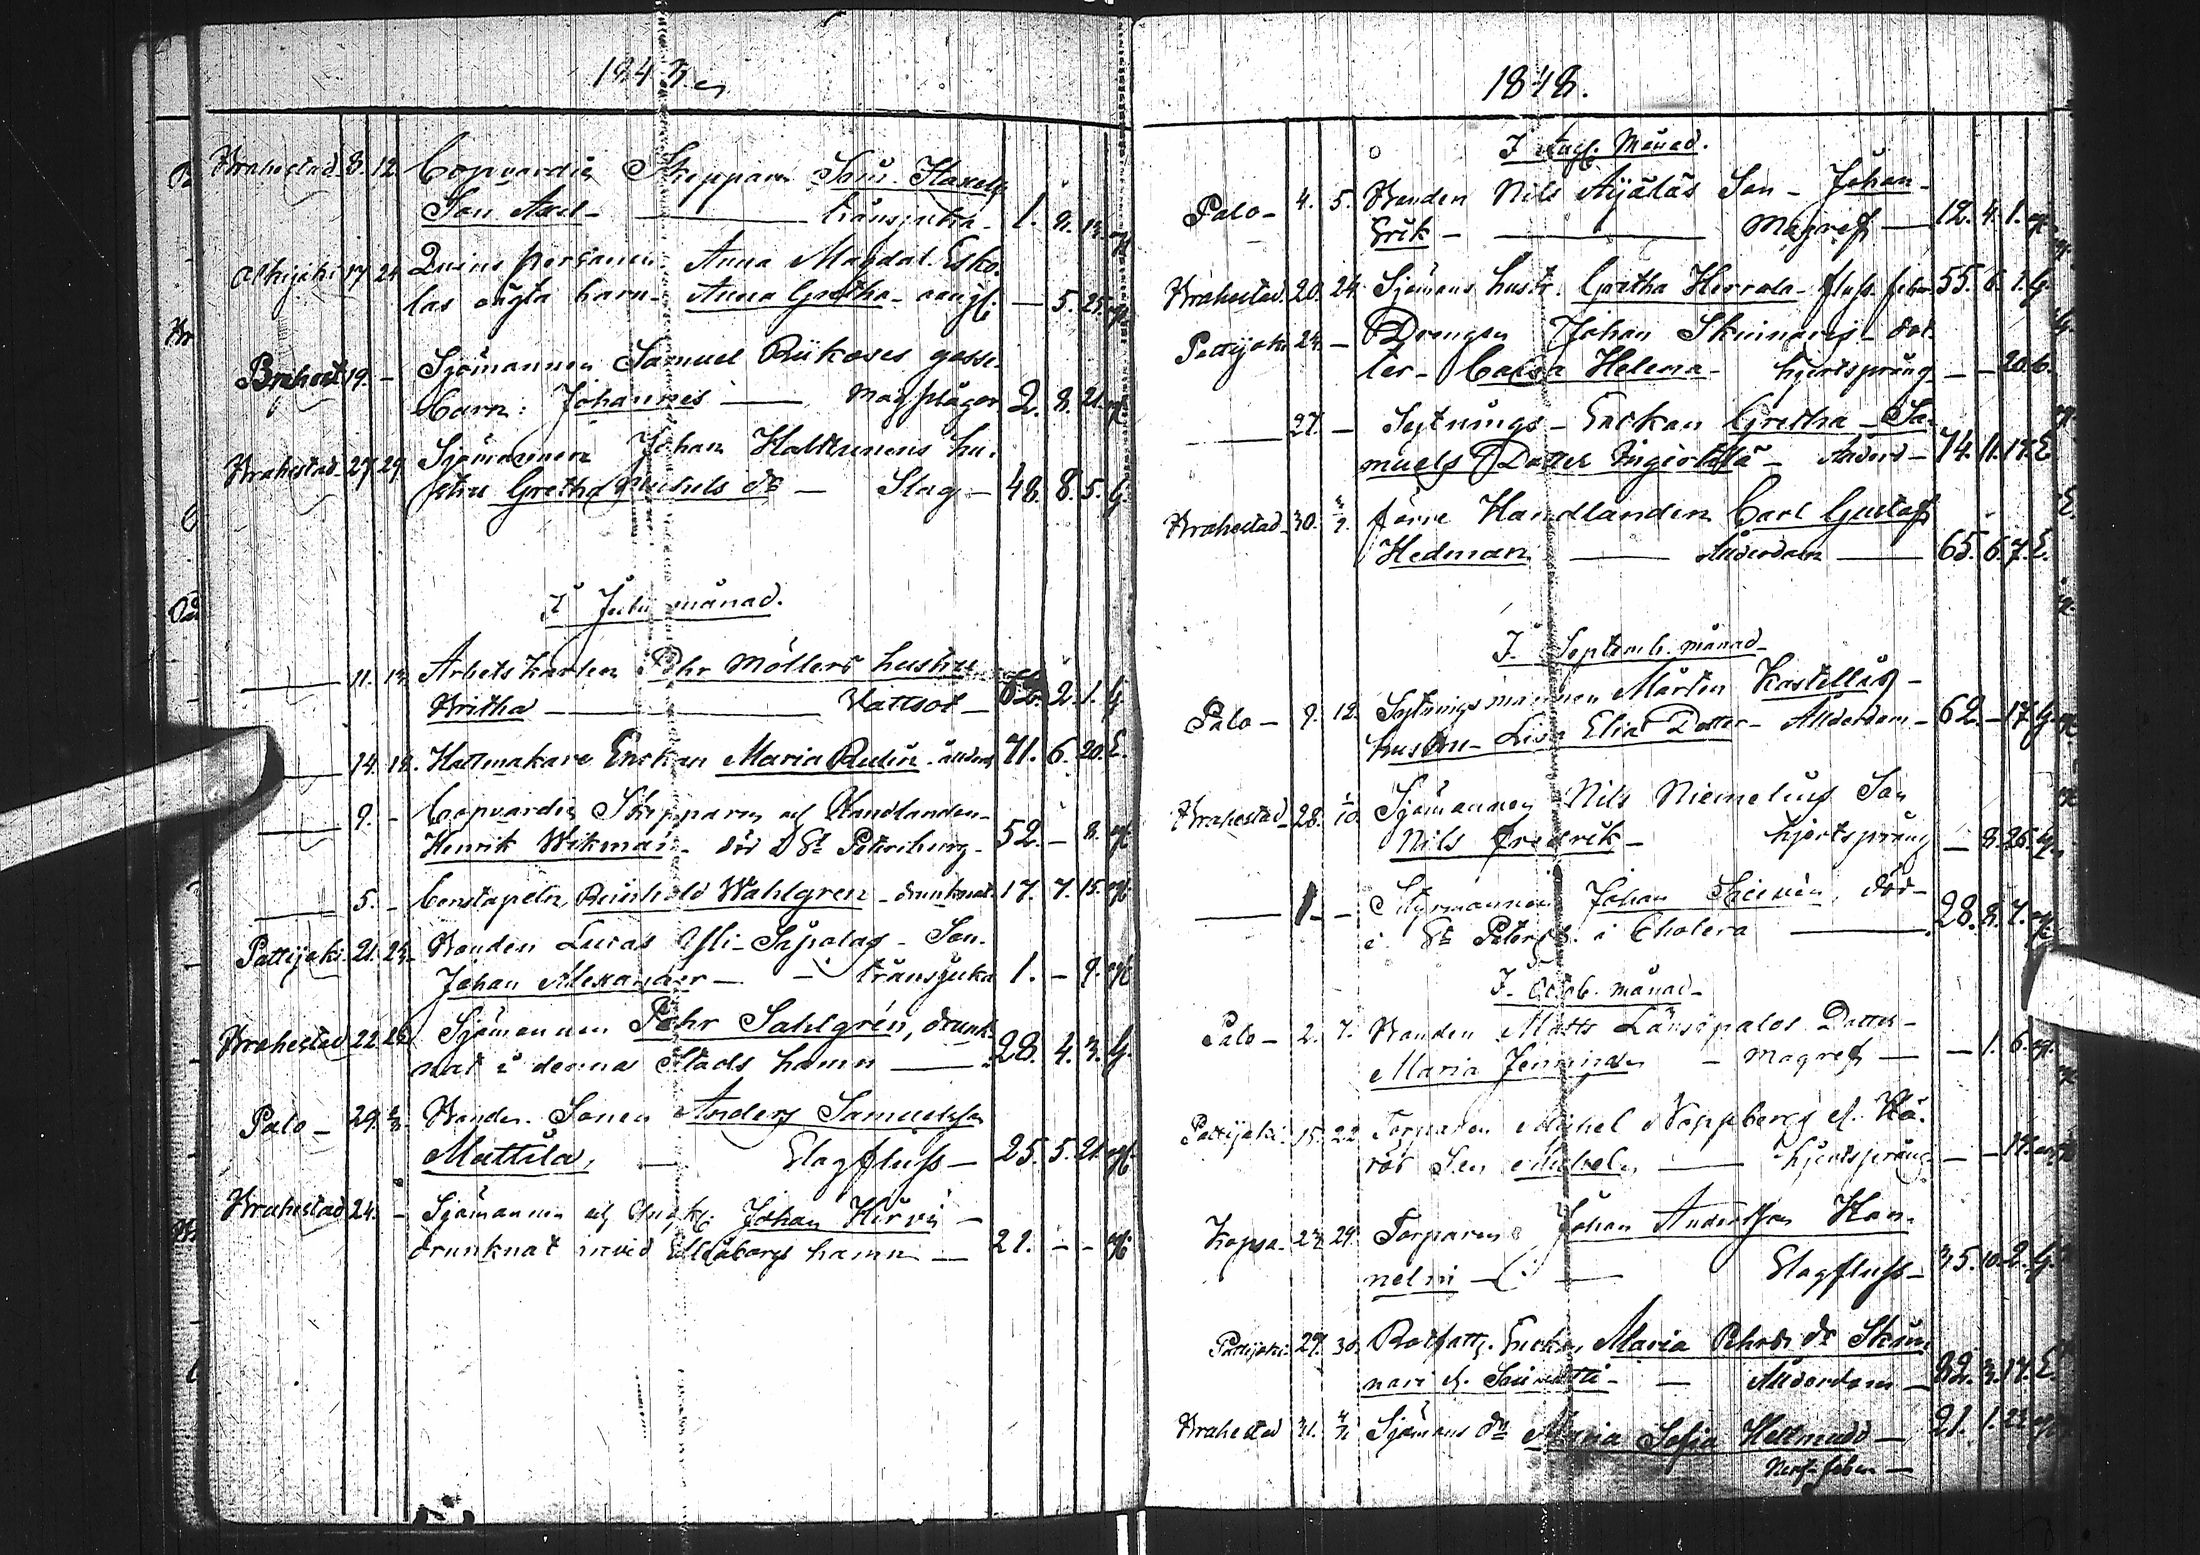 1848.
Brahestad 8. 12. Copvardie Skepparen Joh. Haxells
Son Axel — tånsjuka 1. 9. 13.
Olkijoki 17 24 Qvins personen Anna Magdal. Esko-
las oägta barn Anna Gretha — 5. 25.
Brahest 19. - Sjömannen Samuel Rükoses gosse-
barn: Johannes — Magplågor 2. 8. 21.
Brahestad 27. 29. Sjömannen Johan Halttunens hu-
stru Gretha Michels dr — Slag — 48. 8. 5. G.
I Julii månad.
— 11. 14. Arbets karlen Pehr Möllers hustru
Britha — Vattsot — 62. 2. 1. G
— 14. 18. Hattmakare Enkan Maria 71. 6. 20. E.
— 9. - Copvardie Skepparen och Handlanden
Henrik Wikman — död i St Petersburg — 52. — 8. og
— 5. - Constapeln Reinhold Wahlgren — drunknat 17. 7. 15. og
Pattijoki 21. 24. Bonden Lucas Yli-Säpolas — Son.
Johan Alexander — tränsjuka 1. — 9. og
Brahestad 22. 26 Sjömannen Pehr Sahlgrén, drunk-
nat i denna Stads hamn — 28. 4. 3. G.
Palo — 29. Bonde Sonen Anders Samuelsson
Mattila, — Slagfluss — 25. 5. 21. og
Brahestad 24. - Sjömannen och Johan Hirvi —
drunknat invid Uleåborgs hamn — 21. — — og
1848.
I Aug. Månad.
Palo — 4. 5. Bonden Nils Äijäläs Son — Johan
Erik — Magref — 12. 4. 1. og
Brahestad 20. 24. Sjömans hustr. Gretha Herrala fluss feber 55. 6. 1. G.
Pattijoki 24. — Drengen Johan Skinnaris dot-
ter — Caisa Helena — hjertsprång — — 20.
— 27. — Sytnings — Enkan Gretha Sa-
muels Dotter — 74. 11. 17. E
Brahestad 30. förre Handlanden Carl Gustaf
Hedman — Ålderdom — 65. 6. 7. E.
I Septemb. månad
Palo — 9. 12. Sytningsmannen Mårten Kastellas —
hustru — Lisa Elias Dotter — Ålderdom — 62. — 17. G.
Brahestad 28. 1/10 Sjömannen Nils Niemelius Son
Nils Fredrik — hjertsprång — 8. 26. og
— 1. — Styrmannen Johan död
i St Petersb. i Cholera — 28. 8. 7. og
I Octob. månad
Palo — 2. 7. Bonden Matts Länsipalos Dotter —
Maria — Magref — — 1. 6. og
Pattijoki 15. 22 Torparen Michel Koppberg
Son Michel — hjertsprång — — 19. og
Kopsa 24. 29. Torparen Johan Andersson Kan-
nelni — Slagfluss — 35. 10. 2. G.
Pattijoki 27. 30. Rotfattig Enkan Maria Pehrs dr Skin-
nari — Ålderdom — 82. 3. 17. E.
Brahestad 31. Sjömans dr Maria Sofia Hellmuld — 21. 1. 23. og
Nerf-feber —